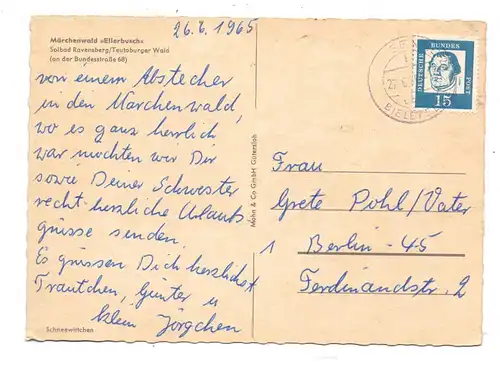 26.6.1965
Märchenwald »Ellerbusch«
Solbad Ravensberg/Teutoburger Wald
(an der Bundesstraße 68)
von einem Abstecher
in den Märchenwald,
wo es ganz herrlich
war möchten wir Dir
sowie Deiner Schwester
recht herzliche Urlaubs
grüsse senden.
Es grüssen Dich herzlichst
Trautchen, Günter u
klein Jörgchen
Schneewittchen
Mohn & Co GmbH Gütersloh
DEUTSCHE BUNDES POST
15
BIELEF
Frau
Grete Pohl/Vater
1 Berlin-45
Ferdinandstr. 2